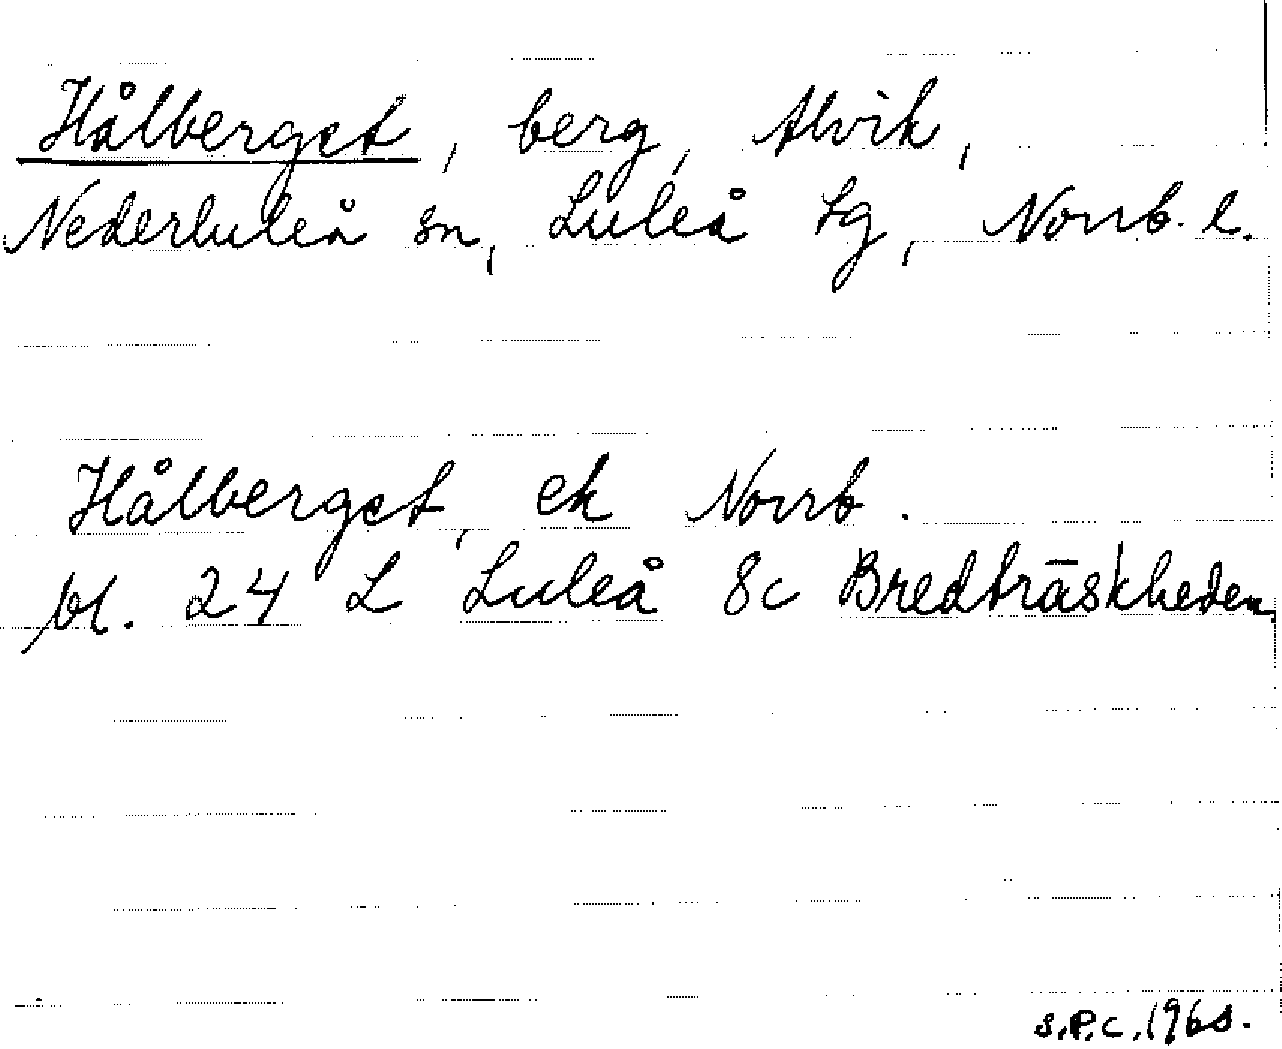 Hålberget, berg, Alvik,
Nederluleå sn, Luleå tg, Norrb. l.
Hålberget, ek Norrb.
bl. 24 L Luleå 8c Bredträskheden.
S.P.C.